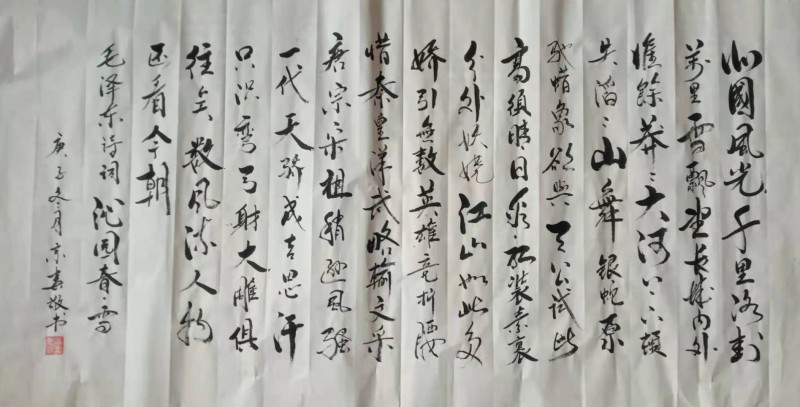 北國風光千里冰封
萬里雪飘望長城内外
惟餘莽〻大河上下頓
失滔〻山舞銀蛇原
驰蜡象欲與天公試比
高須晴日看红装素裹
分外妖娆江山如此多
娇引無数英雄竞折腰
惜秦皇漢武略輸文采
唐宗宋祖稍逊風骚
一代天骄成吉思汗
只识弯弓射大雕俱
往矣数風流人物
还看今朝
毛泽东诗词沁园春·雪
庚子冬月敬书